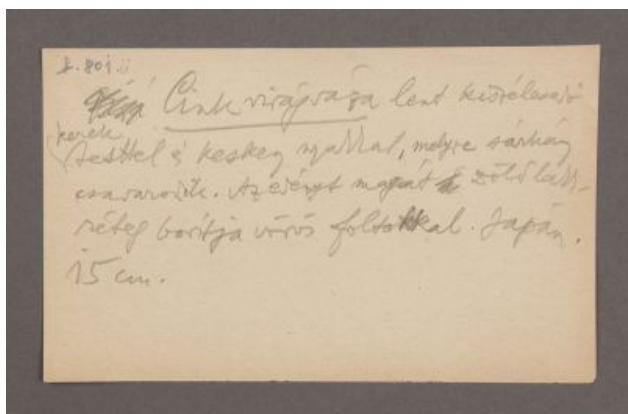 Cink virágváza lent kiszélesedő
kerek
testtel és keskeny nyakkal, melyre sárkány
csavarodik. Az edényt magát zöld lakk-
réteg borítja vörös foltokkal. Japán.
15 cm.